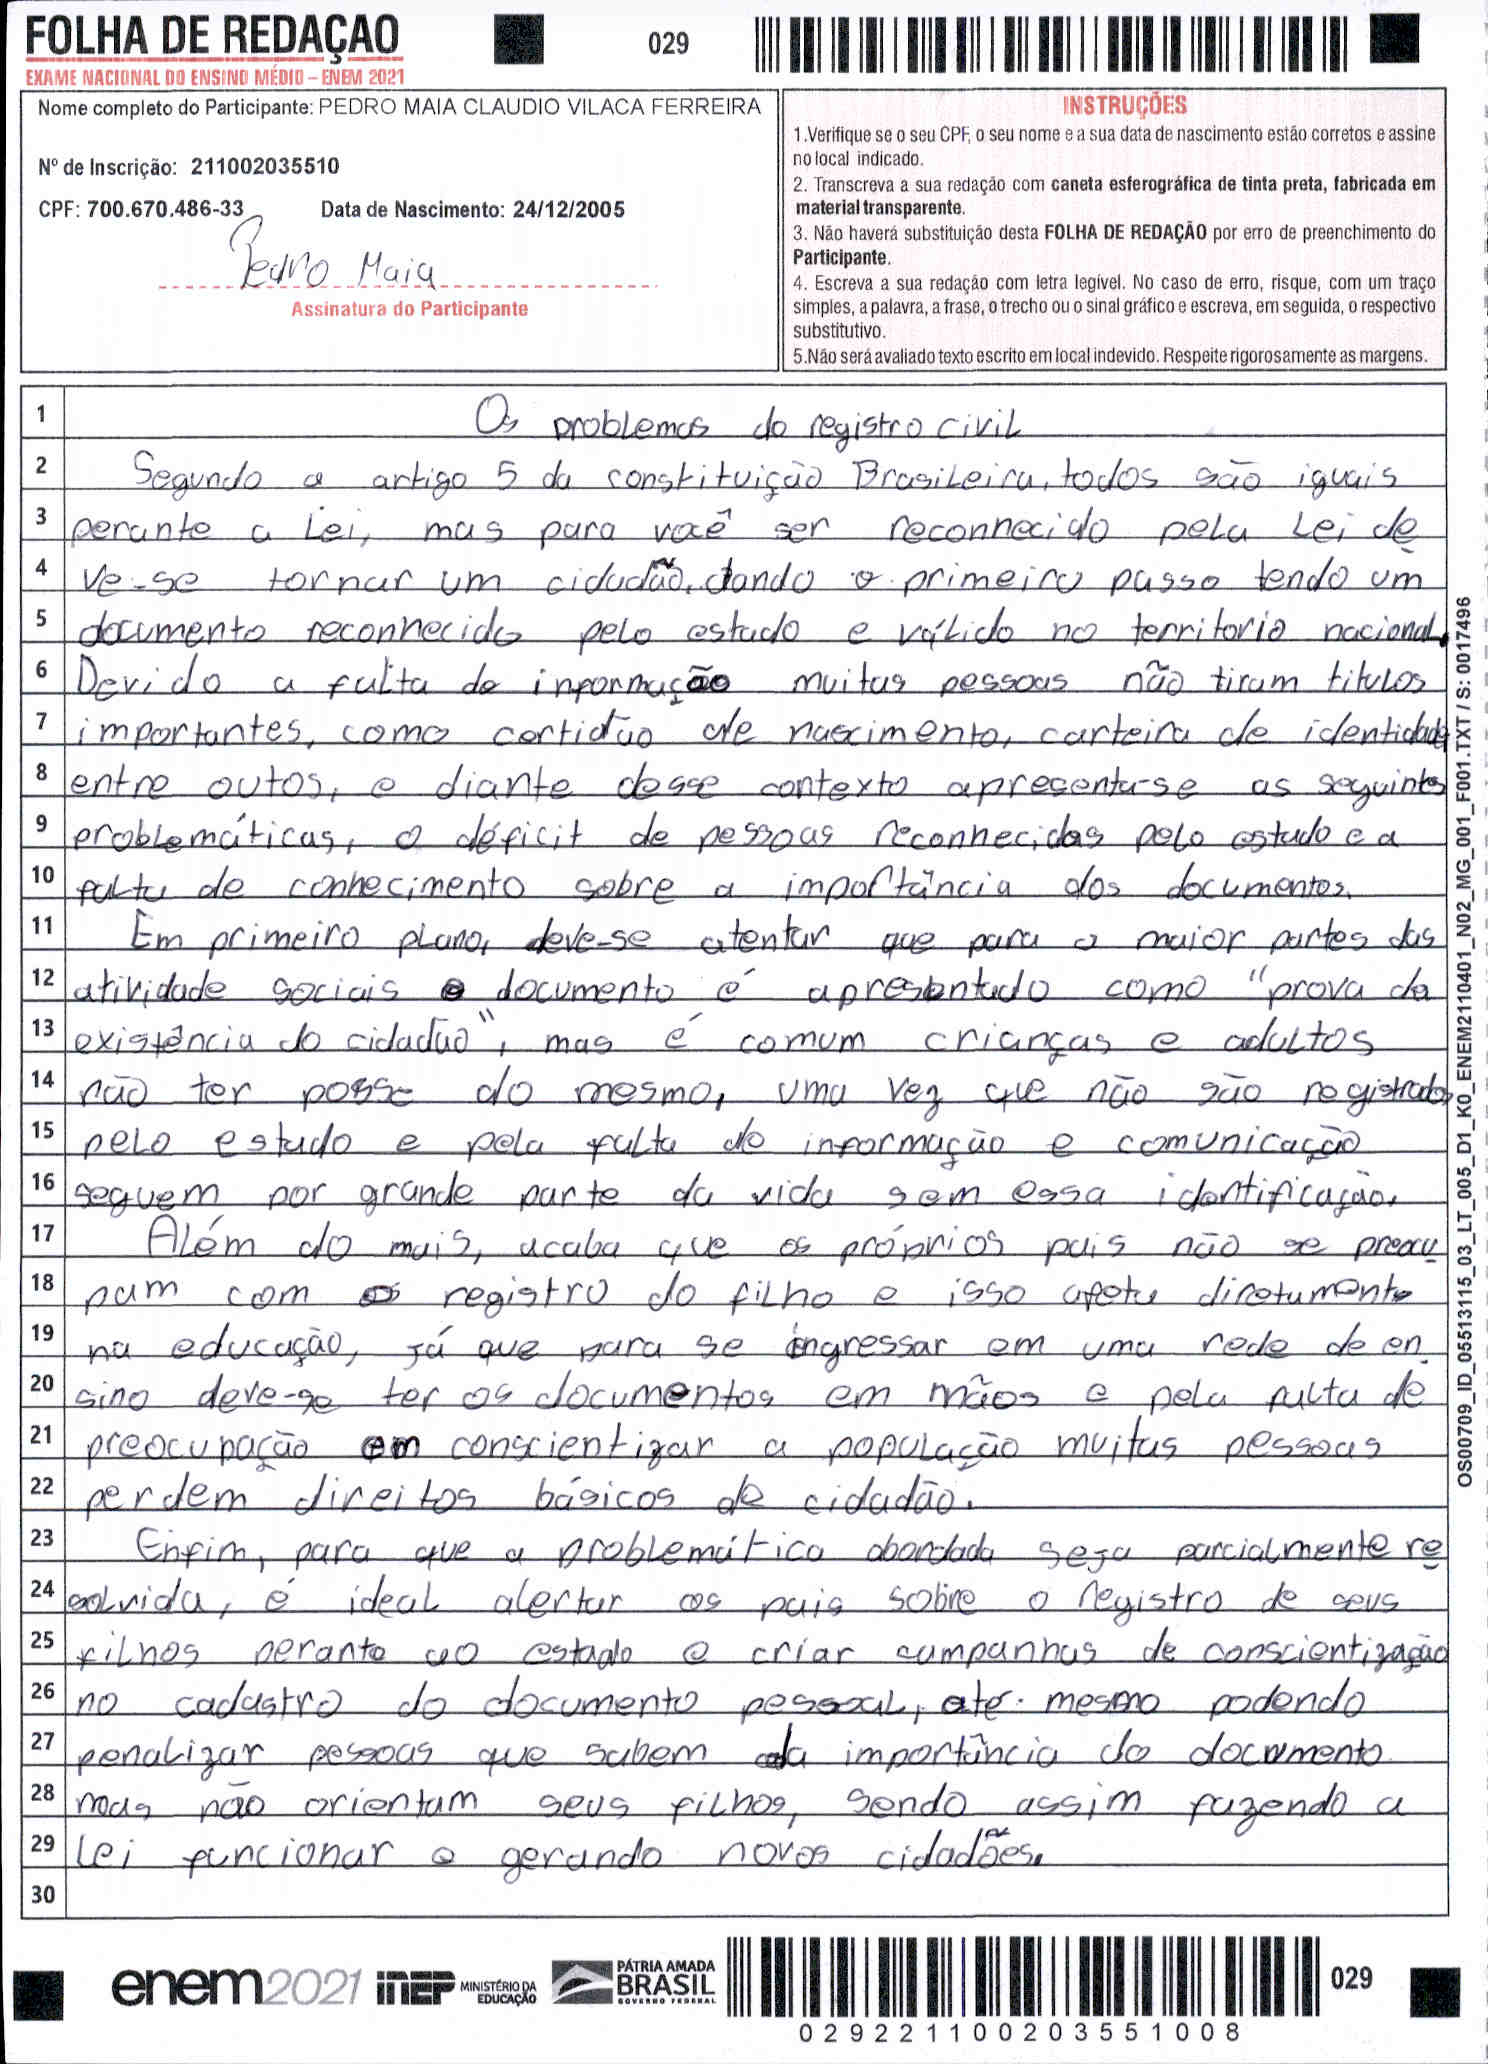 FOLHA DE REDAÇAO
029
EXAME NACIONAL DO ENSINO MÉDIO – ENEM 2021
Nome completo do Participante: PEDRO MAIA CLAUDIO VILACA FERREIRA
Nº de Inscrição: 211002035510
CPF: 700.670.486-33 Data de Nascimento: 24/12/2005
Pedro Maia
Assinatura do Participante
INSTRUÇÕES
1.Verifique se o seu CPF, o seu nome e a sua data de nascimento estão corretos e assine
no local indicado.
2. Transcreva a sua redação com caneta esferográfica de tinta preta, fabricada em
material transparente.
3. Não haverá substituição desta FOLHA DE REDAÇÃO por erro de preenchimento do
Participante.
4. Escreva a sua redação com letra legível. No caso de erro, risque, com um traço
simples, a palavra, a frase, o trecho ou o sinal gráfico e escreva, em seguida, o respectivo
substitutivo.
5.Não será avaliado texto escrito em local indevido. Respeite rigorosamente as margens.
1 Os problemas do registro civil
2 Segundo o artigo 5 da constituição Brasileira, todos são iguais
3 perante a Lei, mas para você ser reconhecido pela Lei de
4 ve-se tornar um cidadão, dando o primeiro passo tendo um
5 documento reconhecido pelo estado e válido no territorio nacional.
6 Devido a falta de informação muitas pessoas não tiram titulos
7 importantes, como certidão de nascimento, carteira de identidade
8 entre outos, e diante desse contexto apresenta-se as seguintes
9 problemáticas, o déficit de pessoas reconhecidas pelo estado e a
10 falta de conhecimento sobre a importância dos documentos.
11 Em primeiro plano, deve-se atentar que para a maior partes das
12 atividade sociais o documento é apresentado como "prova da
13 existência do cidadão", mas é comum crianças e adultos
14 não ter posse do mesmo, uma vez que não são registrados
15 pelo estado e pela falta de informação e comunicação
16 seguem por grande parte da vida sem essa identificação.
17 Além do mais, acaba que os próprios pais não se preocu
18 pam com o registro do filho e isso afeta diretamente
19 na educação, já que para se ingressar em uma rede de en
20 sino deve-se ter os documentos em mãos e pela falta de
21 preocupação em conscientizar a população muitas pessoas
22 perdem direitos básicos de cidadão.
23 Enfim, para que a problemática abordada seja parcialmente re
24 solvida, é ideal alertar os pais sobre o registro de seus
25 filhos perante ao estado e criar campanhas de conscientização
26 no cadastro do documento pessoal, até mesmo podendo
27 penalizar pessoas que sabem da importância do documento
28 mas não orientam seus filhos, sendo assim fazendo a
29 Lei funcionar e gerando novos cidadões.
30
OS00709_ID_05513115_03_LT_005_D1_K0_ENEM2110401_N02_MG_001_F001.TXT / S: 0017496
enem2021
inep
MINISTÉRIO DA
EDUCAÇÃO
PÁTRIA AMADA
BRASIL
GOVERNO FEDERAL
029
029221100203551008